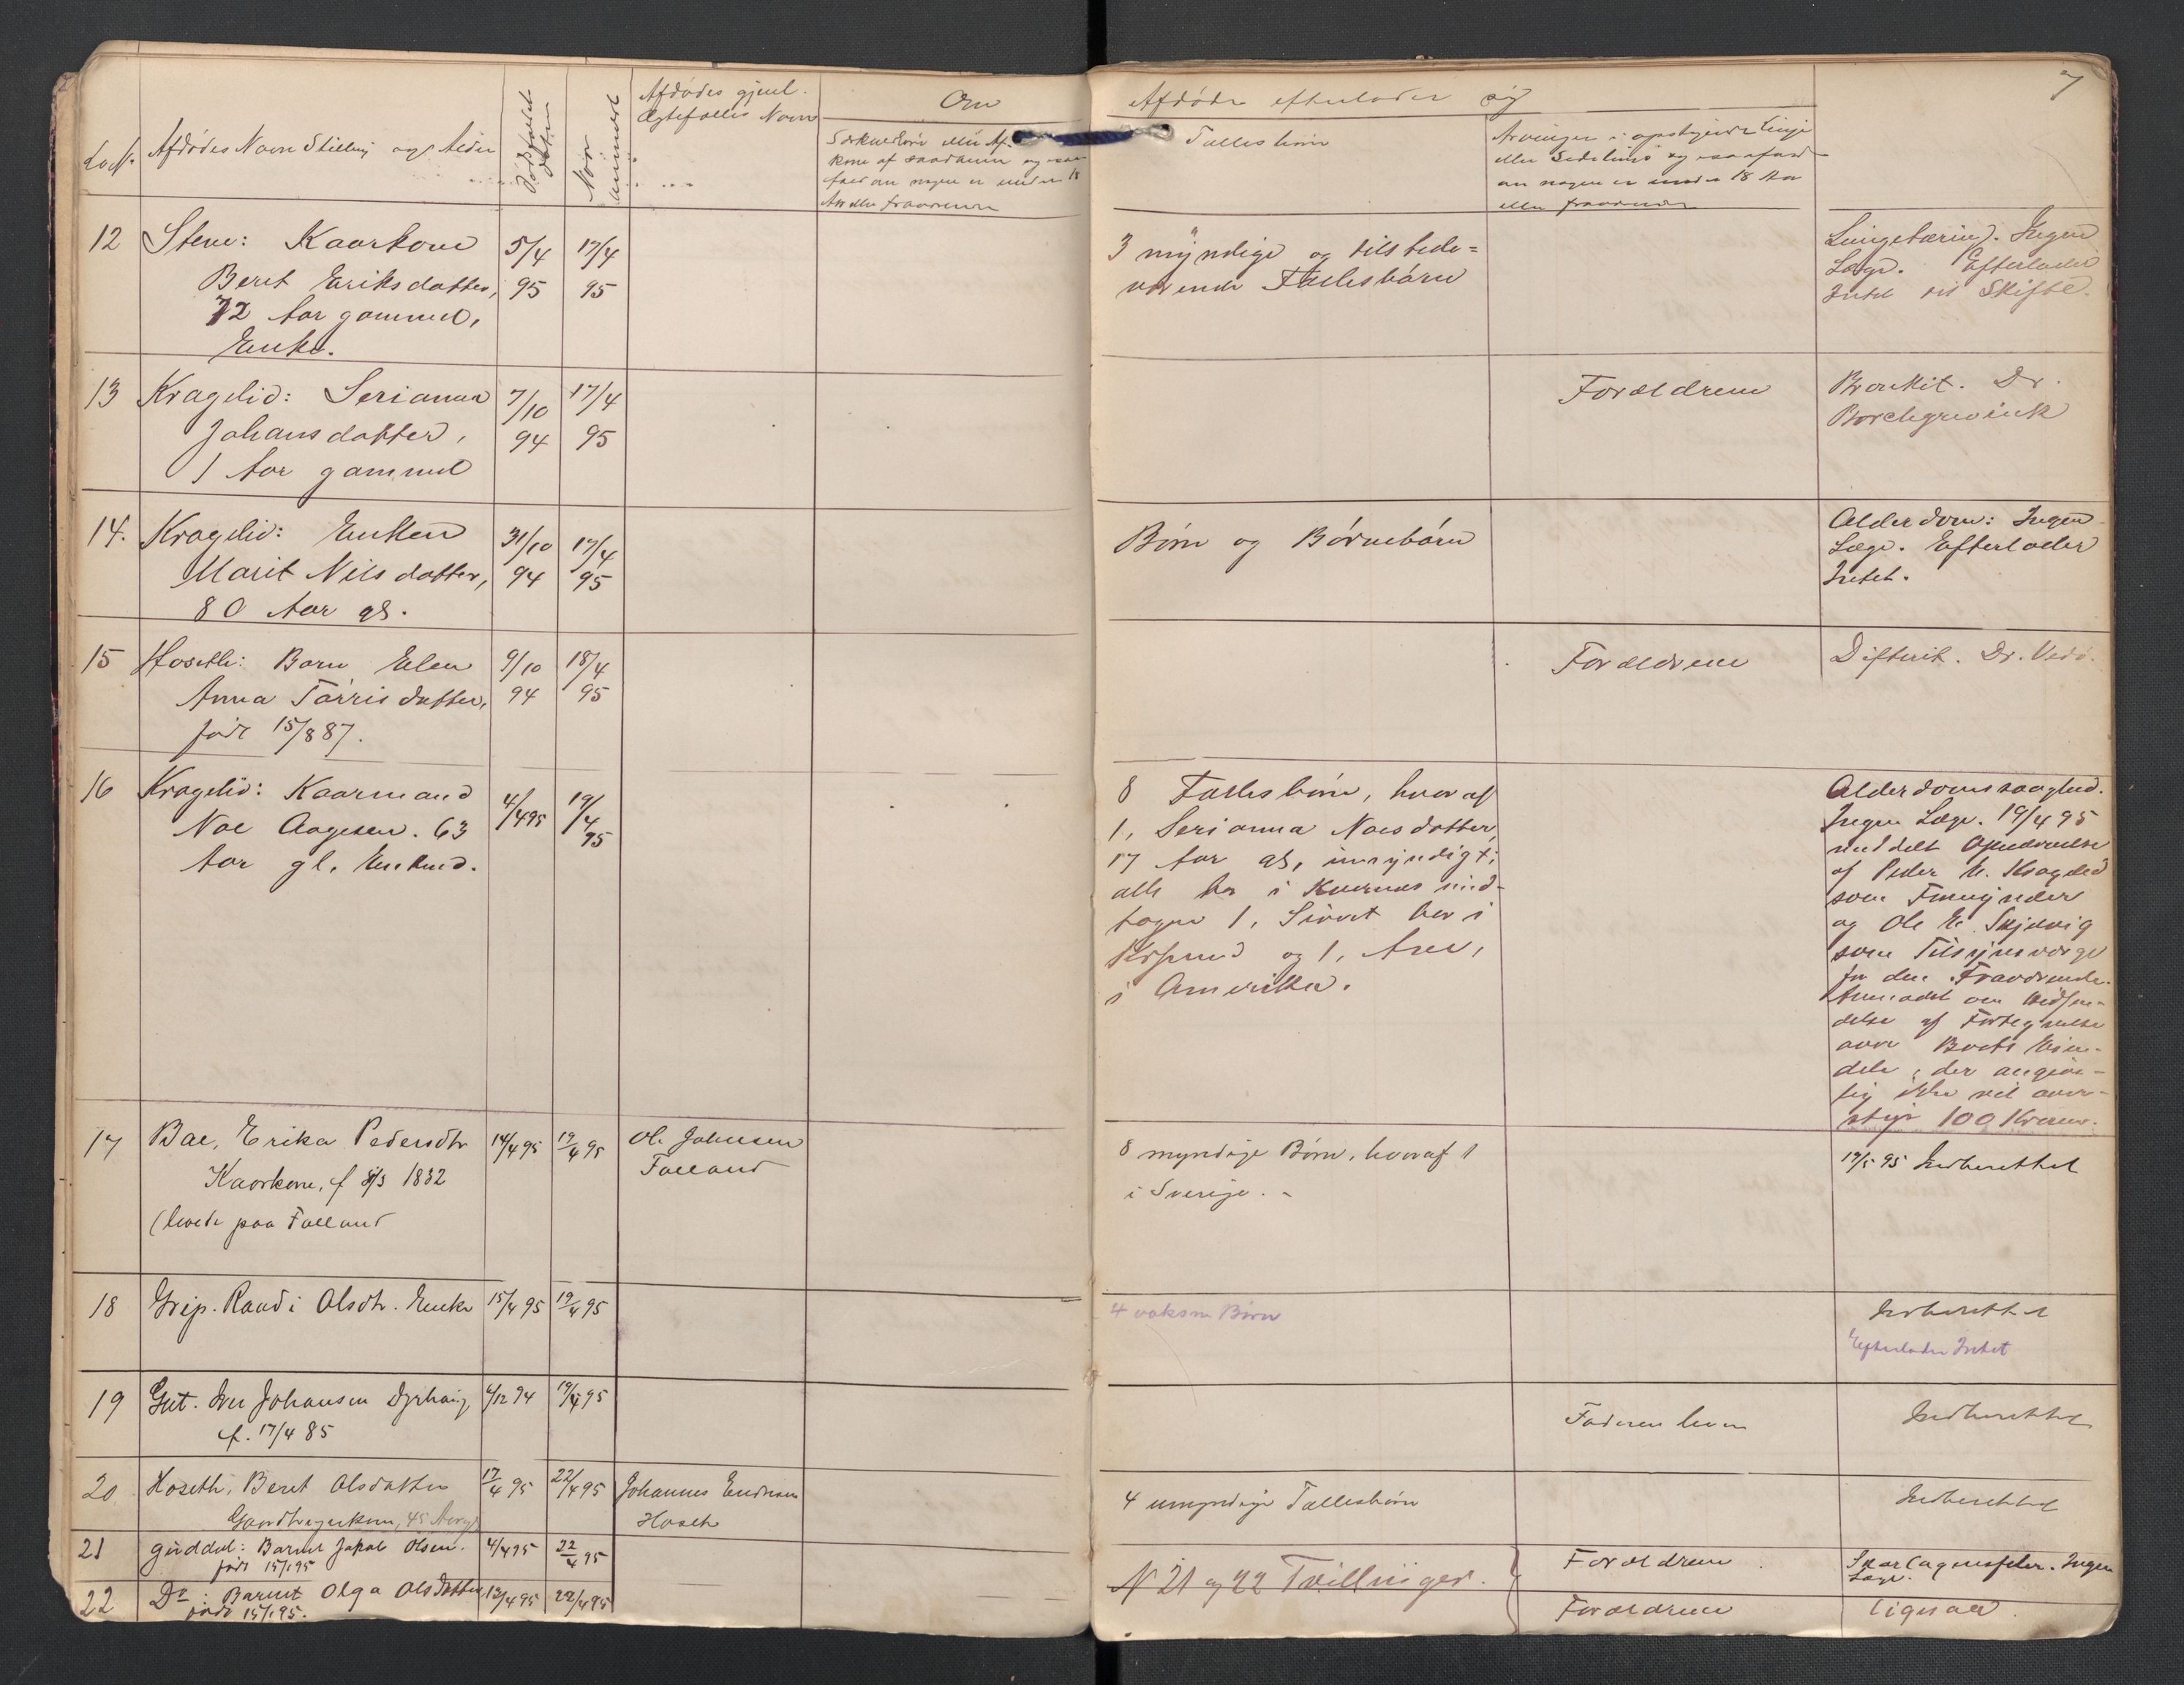 7
Lod №
Afdødes Navn Stilling og Alder
Dødsfaldet
Naar anmeldt
Afdødes gjenl.
Ægtefælles Navn
Om
Særkuldbørn eller Af-
kom af saadanne og saa
fald om nogen er under 18
Aar eller fraværende
Afdøde efterlader sig
Fællesbørn
Arvinger i opstigende Linje
eller Sidelinje og isaafald
om nogen er under 18 Aar
eller fraværende
12
Stene: Kaarkone
Beret Eriksdatter,
72 Aar gammel,
Enke.
5/4
95
17/4
95
3 myndige og tilstede=
værende Fællesbørn
Lungetæring. Ingen
Læge. Efterlader
Intet til Skifte.
13
Kragelid: Serianna
Johansdatter,
1 Aar gammel
7/10
94
17/4
95
Forældrene
Bronkit. Dr.
Borchgrevink
14.
Kragelid: Enken
Marit Nilsdatter,
80 Aar gl.
31/10
94
17/4
95
Børn og Børnebørn
Alderdom: Ingen
Læge. Efterlader
Intet.
15
Hoseth: Barn Elen
Anna Tørrisdatter,
født 15/8 87.
9/10
94
18/4
95
Forældrene
Difterit. Dr. Vedø.
16
Kragelid: Kaarmand
Noe Aagesen. 63
Aar gl. Enkmd.
4/4 95
19/4
95
8 Fællesbørn, hvoraf
1, Serianna Noesdatter,
17 Aar gl, umyndigt;
alle bor i Kvernes und-
tagen 1, Sivert bor i
Krsund og 1, Arne,
i Amerika.
Alderdomssvaghed.
Ingen Læge. 19/4 95
meddelt Opnævnelse
af Peder E. Kragelid
som Formynder
og Ole E. Skjelvig
som Tilsynsværge
for den Fraværende.
Anmodet om Indsen-
delse af Fortegnelse
over Boets Eien-
dele, der angive-
lig ikke vil over-
stige 100 Kroner.
17
Bae, Erika Pedersdtr
Kaarkone, f 8/3 1832
(levede paa Folland
14/4 95
19/4 95
Ole Johnsen
Folland
8 myndige Børn, hvoraf 1
i Sverige. -
17/5 95 Indberettet
18
Grip. Randi Olsdtr. Enke
15/4 95
19/4 95
4 voksne Børn
Indberettet
Efterlader Intet
19
Gut. Iver Johansen Dyrhaug
f. 17/4 85
4/12 94
19/4 95
Faderen lever
Indberettet
20
Hoseth, Beret Olsdatter
Gaardbrugerkone, 45 Aar gl
17/4 95
22/4 95
Johannes Endresen
Hoseth
4 umyndige Fællesbørn
Indberettet
21
Guddal: Barnet Jakob Olsen.
født 15/1 95
4/4 95
22/4 95
N 21 og 22 Tvillinger.
Forældrene
Ingen
Læge.
22
Do: Barnet Olga Olsdatter
født 15/1 95.
12/4 95
22/4 95
Forældrene
Ligesaa